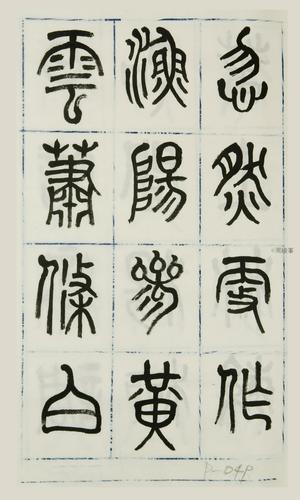 忽然更作
漁陽摻黃
雲蕭條白